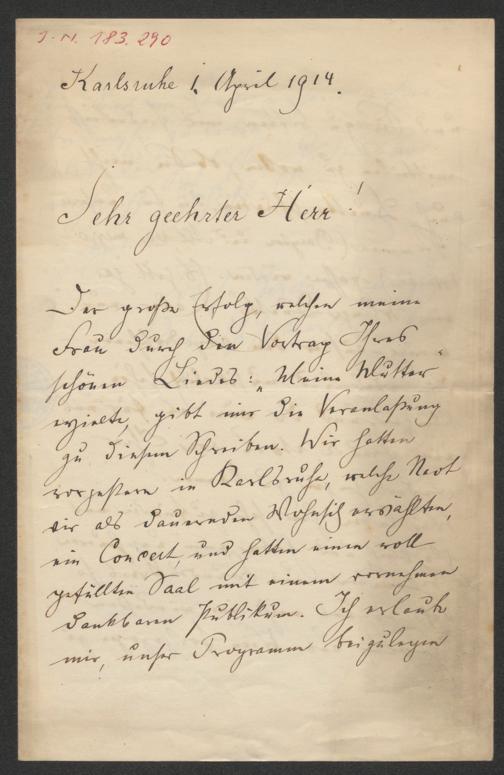 I. N. 183.290
Karlsruhe 1. April 1914.
Sehr geehrter Herr!
Der große Erfolg, welchen meine
Frau durch den Vortrag Ihres
schönen Liedes: „Meine Mutter"
erzielte, gibt mir die Veranlaßung
zu diesem Schreiben. Wir hatten
vorgestern in Karlsruhe, welche Stadt
wir als dauernden Wohnsitz erwählten,
ein Concert, und hatten einen voll
gefüllten Saal mit einem vornehmen
dankbaren Publikum. Ich erlaube
mir, unser Programm beizulegen